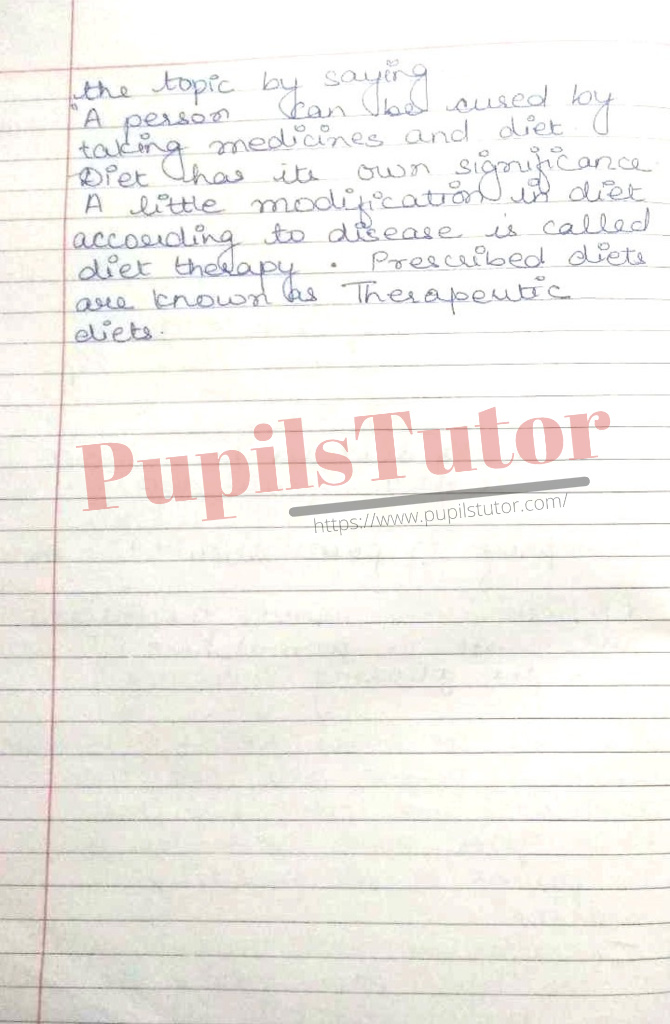 the topic by saying
"A person can be cured by
taking medicines and diet.
Diet has its own significance
A little modification in diet
according to disease is called
diet therapy. Prescribed diets
are known as Therapeutic
diets.
PupilsTutor
https://www.pupilstutor.com/